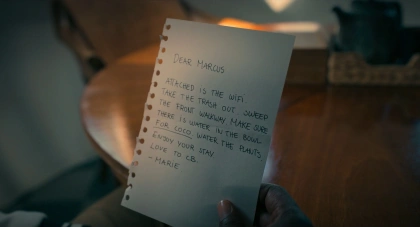 DEAR MARCUS
ATTACHED IS THE WIFI.
TAKE THE TRASH OUT, SWEEP
THE FRONT WALKWAY. MAKE SURE
THERE IS WATER IN THE BOWL
FOR COCO. WATER THE PLANTS.
ENJOY YOUR STAY.
LOVE TO
- MARIE